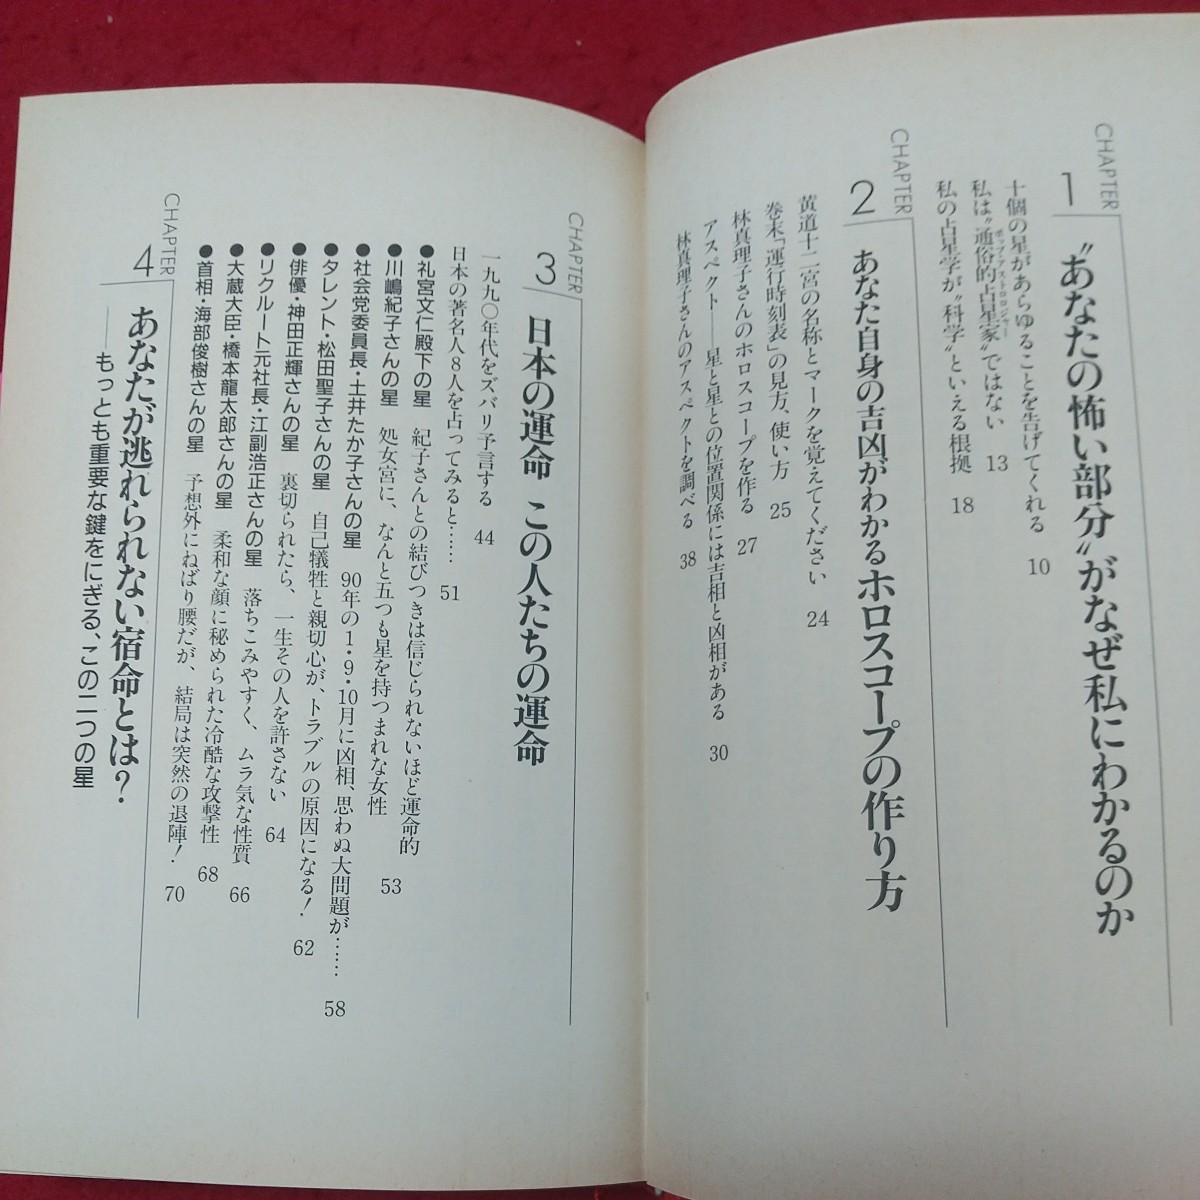 CHAPTER
1
〝あなたの怖い部分〟がなぜ私にわかるのか
十個の星があらゆることを告げてくれる 10
私は〝通俗的占星家〟ではない 13
ポップ・アストロロジャー
私の占星学が〝科学〟といえる根拠 18
CHAPTER
2
あなた自身の吉凶がわかるホロスコープの作り方
黄道十二宮の名称とマークを覚えてください 24
巻末「運行時刻表」の見方、使い方 25
林真理子さんのホロスコープを作る 27
アスペクト――星と星との位置関係には吉相と凶相がある 30
林真理子さんのアスペクトを調べる 38
CHAPTER
3
日本の運命 この人たちの運命
一九九〇年代をズバリ予言する 44
日本の著名人8人を占ってみると…… 51
●礼宮文仁殿下の星 紀子さんとの結びつきは信じられないほど運命的
●川嶋紀子さんの星 処女宮に、なんと五つも星を持つまれな女性 53
●社会党委員長・土井たか子さんの星 90年の1・9・10月に凶相、思わぬ大問題が…… 58
●タレント・松田聖子さんの星 自己犠牲と親切心が、トラブルの原因になる! 62
●俳優・神田正輝さんの星 裏切られたら、一生その人を許さない 64
●リクルート元社長・江副浩正さんの星 落ちこみやすく、ムラ気な性質 66
●大蔵大臣・橋本龍太郎さんの星 柔和な顔に秘められた冷酷な攻撃性 68
●首相・海部俊樹さんの星 予想外にねばり腰だが、結局は突然の退陣! 70
CHAPTER
4
あなたが逃れられない宿命とは?
――もっとも重要な鍵をにぎる、この二つの星